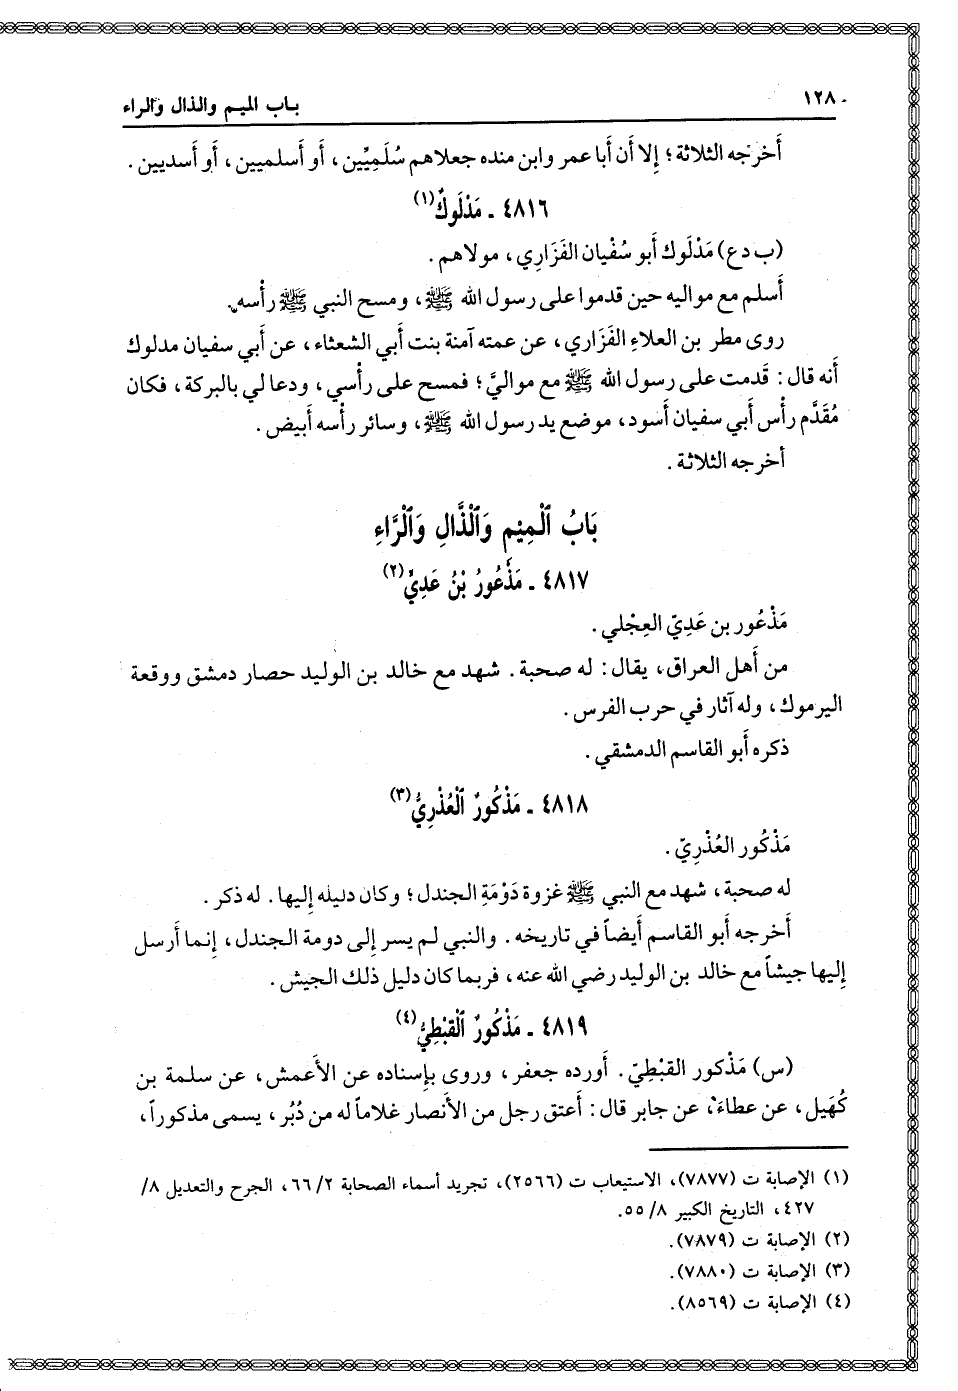 ١٢٨ باب الميم والذال والراء
أَخرجه الثلاثة؛ إِلا أَن أَبا عمر وابن منده جعلاهم سُلَمِيِّين، أَو أَسلميين، أَو أَسديين.
٤٨١٦ ـ مَدْلُوكٌ(١)
(ب د ع) مَدْلُوك أَبو سُفْيان الفَزَارِي، مولاهم.
أَسلم مع مواليه حين قدموا على رسول الله ﷺ، ومسح النبي ﷺ رأْسه.
روى مطر بن العلاءِ الفَزَاري، عن عمته آمنة بنت أَبي الشعثاء، عن أَبي سفيان مدلوك
أَنه قال: قَدمت على رسول الله ﷺ مع مواليَّ؛ فمسح على رأْسي، ودعا لي بالبركة، فكان
مُقَدَّم رأْس أَبي سفيان أَسود، موضع يد رسول الله ﷺ، وسائر رأْسه أَبيض.
أَخرجه الثلاثة.
بَابُ ٱلْمِيْمِ وَٱلْذَّالِ وَٱلْرَّاءِ
٤٨١٧ ـ مَذْعُورُ بْنُ عَدِيٍّ(٢)
مَذْعُور بن عَدِيّ العِجْلي.
من أَهل العراق، يقال: له صحبة. شهد مع خالد بن الوليد حصار دمشق ووقعة
اليرموك، وله آثار في حرب الفرس.
ذكره أَبو القاسم الدمشقي.
٤٨١٨ ـ مَذْكُورٌ ٱلْعُذْرِيُّ(٣)
مَذْكُور العُذْرِيّ.
له صحبة، شهد مع النبي ﷺ غزوة دَوْمَةِ الجندل؛ وكان دليله إِليها. له ذكر.
أَخرجه أَبو القاسم أَيضاً في تاريخه. والنبي لم يسر إِلى دومة الجندل، إِنما أَرسل
إِليها جيشاً مع خالد بن الوليد رضي الله عنه، فربما كان دليل ذلك الجيش.
٤٨١٩ ـ مَذْكُورٌ ٱلْقِبْطِيُّ(٤)
(س) مَذْكور القبْطِيّ. أَورده جعفر، وروى بإِسناده عن الأَعمش، عن سلمة بن
كُهَيل، عن عطاءَ، عن جابر قال: أَعتق رجل من الأَنصار غلاماً له من دُبُر، يسمى مذكوراً،
(١) الإصابة ت (٧٨٧٧)، الاستيعاب ت (٢٥٦٦)، تجريد أسماء الصحابة ٢/ ٦٦، الجرح والتعديل ٨/
٤٢٧، التاريخ الكبير ٨/ ٥٥.
(٢) الإصابة ت (٧٨٧٩).
(٣) الإصابة ت (٧٨٨٠).
(٤) الإصابة ت (٨٥٦٩).